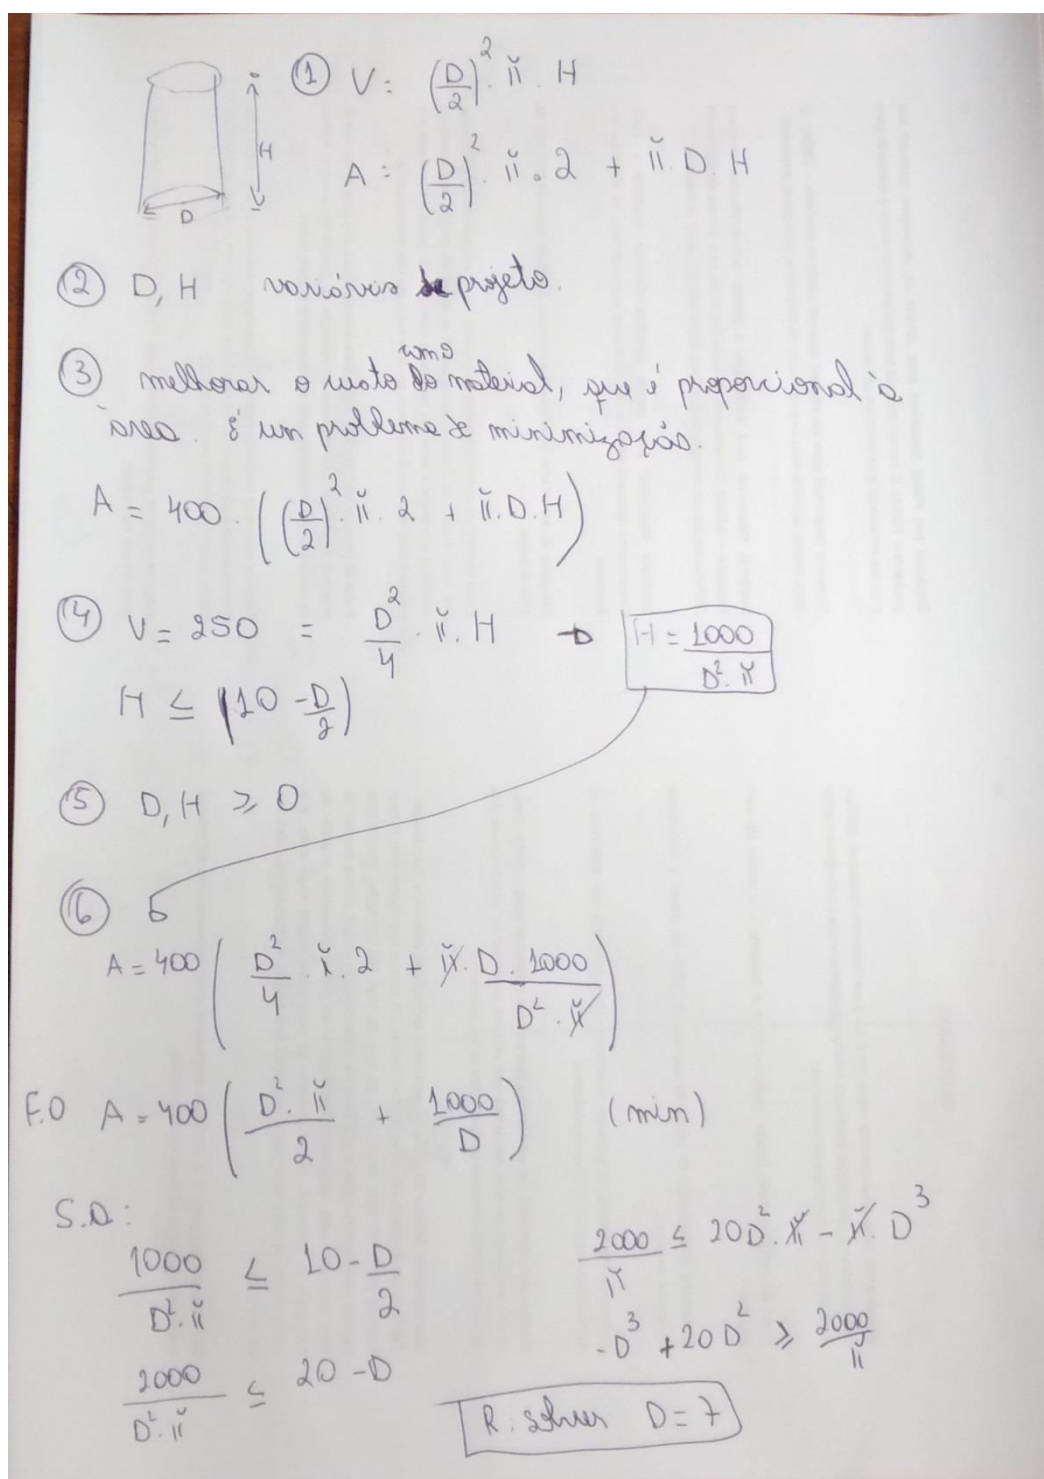 ① V = (D/2)² . π . H
A = (D/2)² . π . 2 + π . D . H
H
D
② D, H variáveis de projeto.
③ melhorar o custo como do material, que é proporcional à
área. É um problema de minimização.
A = 400 . ((D/2)² . π . 2 + π . D . H)
④ V = 250 = D²/4 . π . H → H = 1000/(D² . π)
H ≤ (10 - D/2)
⑤ D, H ≥ 0
⑥
A = 400 (D²/4 . π . 2 + π . D . 1000/(D² . π))
F.O A = 400 (D² . π/2 + 1000/D) (min)
S.A:
1000/(D² . π) ≤ 10 - D/2
2000/(D² . π) ≤ 20 - D
2000/π ≤ 20D² . π - π . D³
-D³ + 20D² ≥ 2000/π
R: solver D = 7